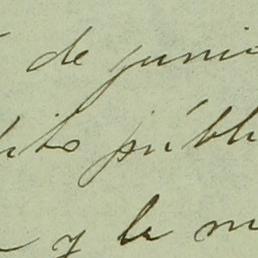 de junio
dito públi
y la m